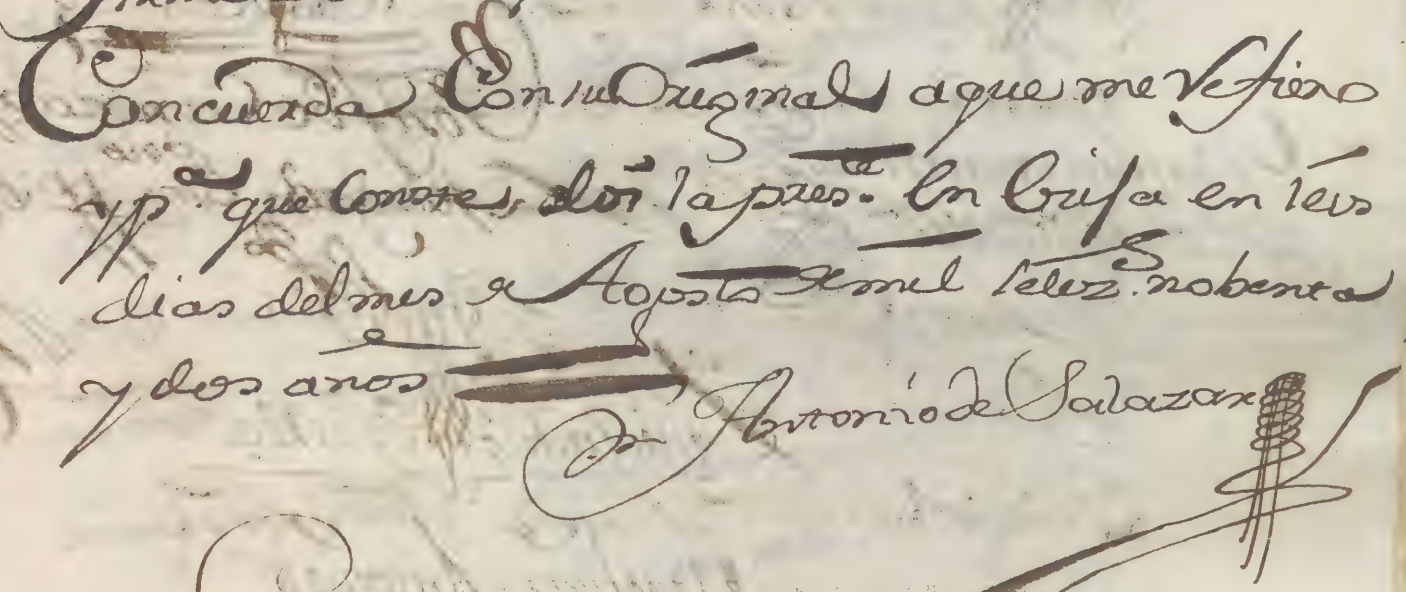 Concuerda Con su Original a que me Refiero
y p.ª que Conste, doi la pres.te En Crisa en seis
dias del mes de Agosto de mil setez.s nobenta
y dos años
Dn Antonio de Salazar